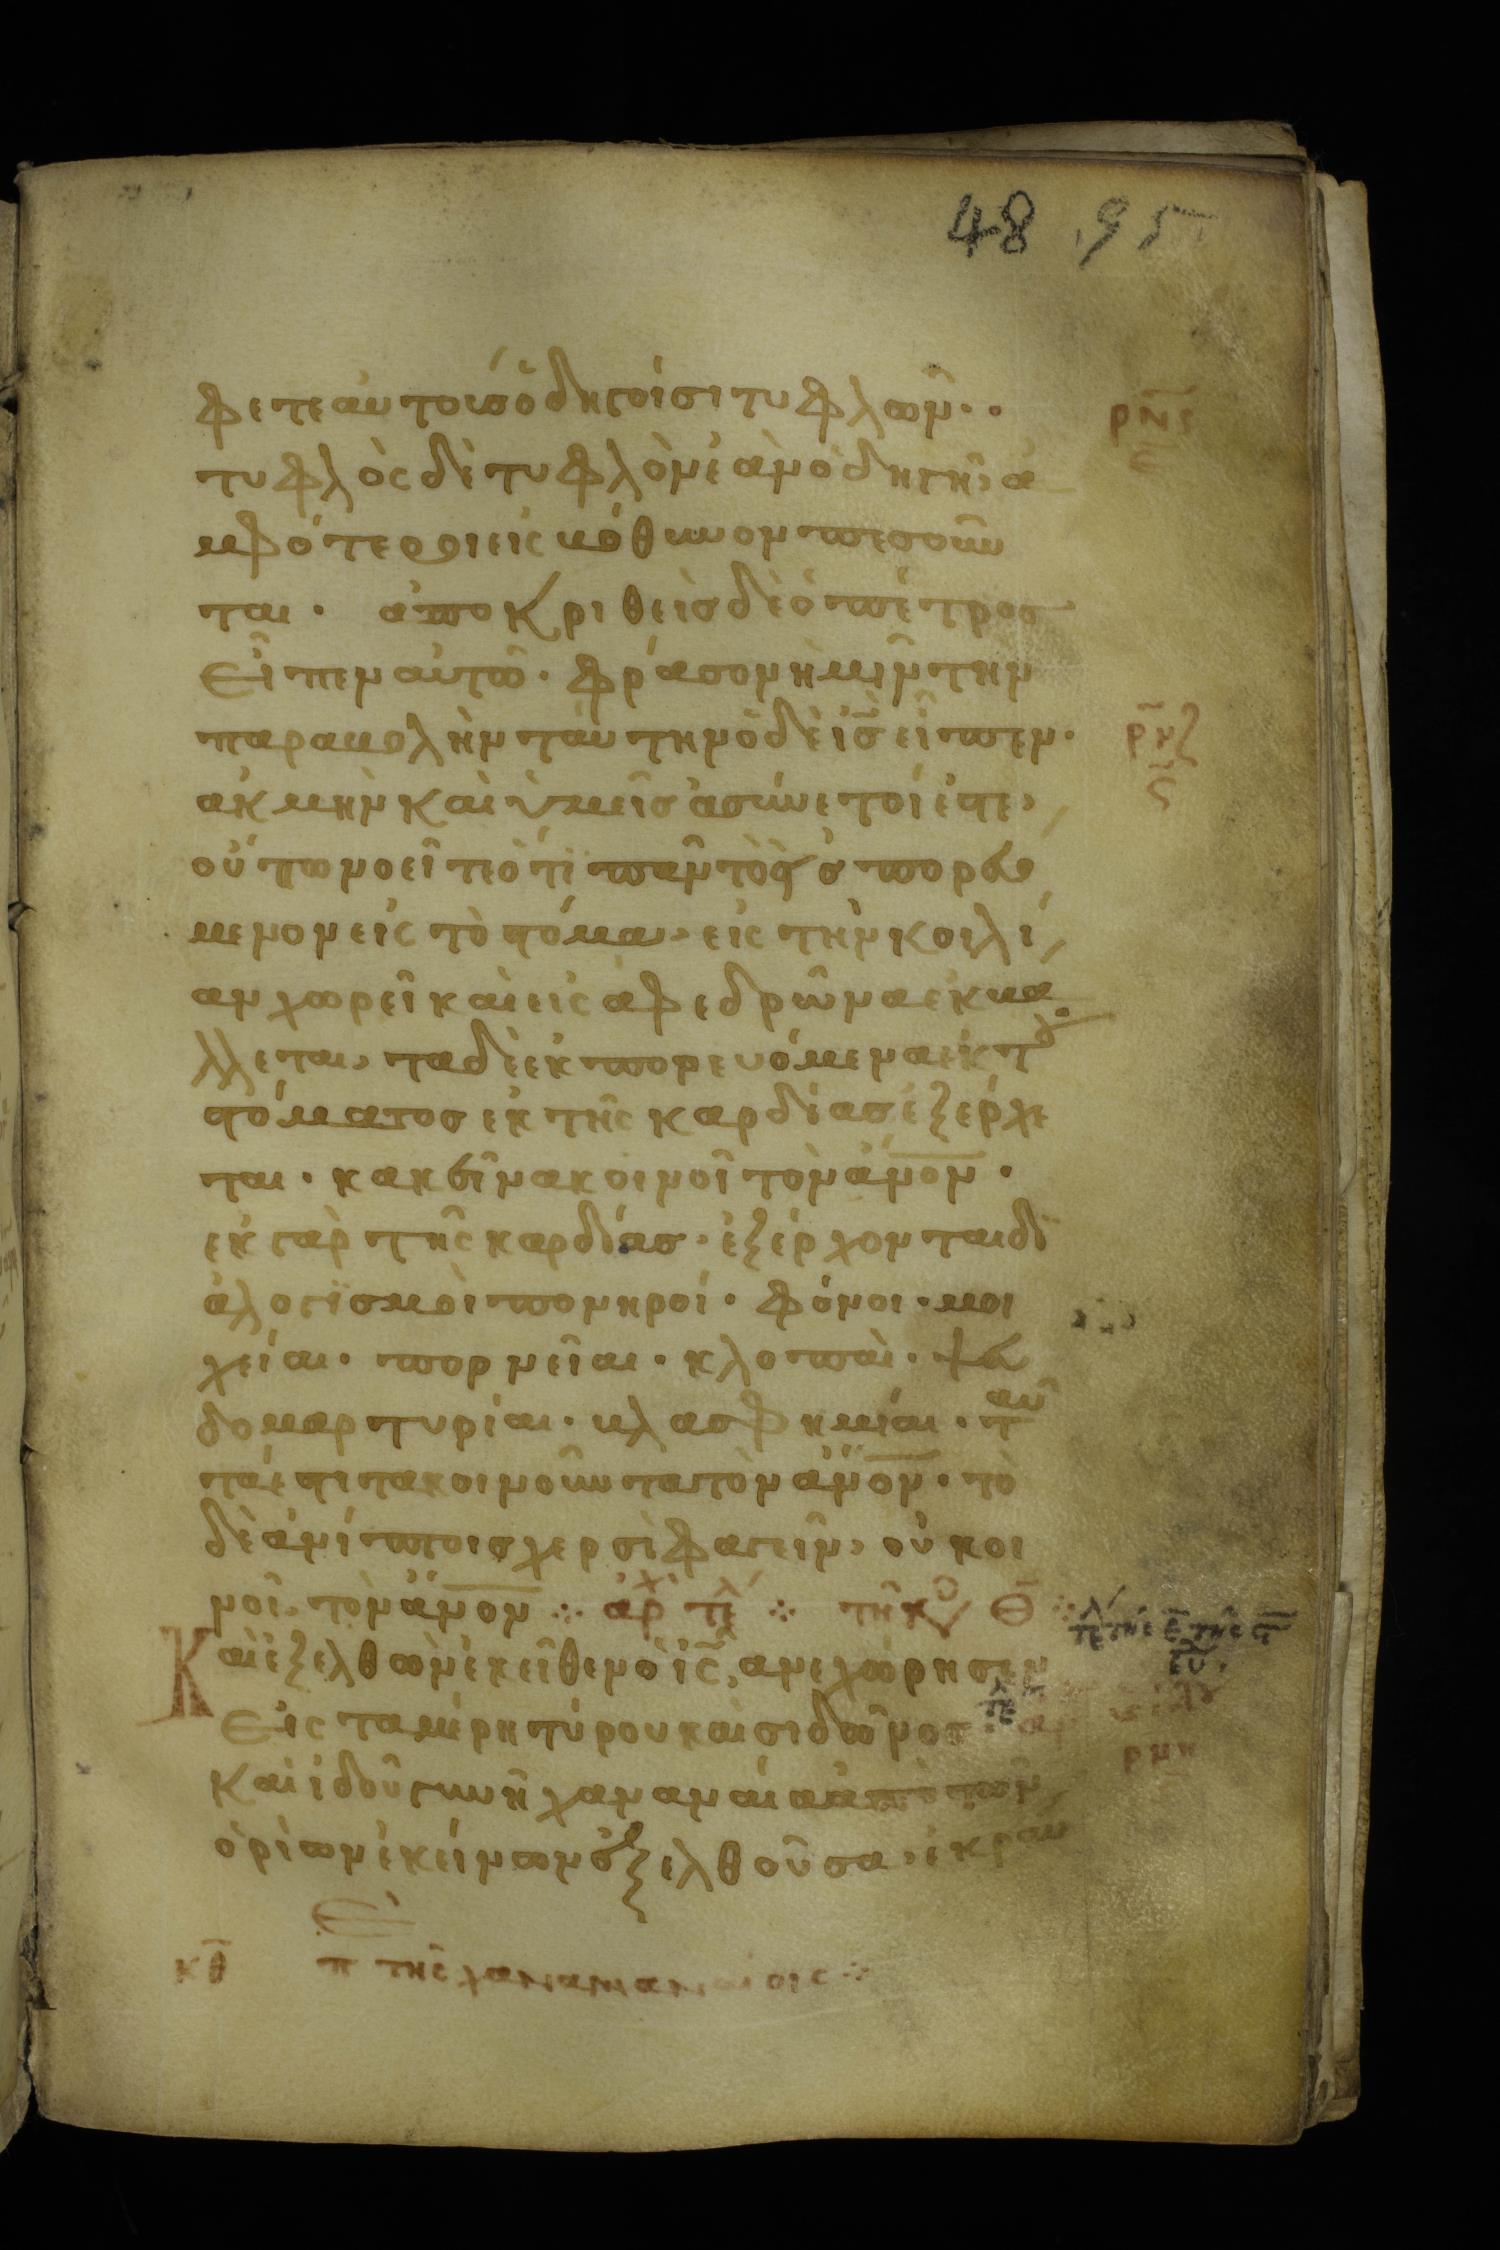 48 95
φετε αὐτοὺς ὁδηγοί εἰσι τυφλῶν·
ρμϛ
ε
τυφλὸς δὲ τυφλὸν ἐὰν ὁδηγῆ, ἀ
μφότεροι εἰς βόθυνον πεσοῦν
ται· ἀποκριθεὶς δὲ ὁ πέτρος
εἶπεν αὐτῶ· φράσον ἡμῖν τὴν
παραβολὴν ταύτην ὁ δὲ ι̅ς̅ εἶπεν·
ρμζ
ϛ
ἀκμὴν καὶ ὑμεῖς ἀσύνετοί ἐστε,
οὔπω νοεῖτε ὅτι πᾶν τὸ εἰσπορευό
μενον εἰς τὸ στόμα, εἰς τὴν κοιλί
αν χωρεῖ καὶ εἰς ἀφεδρῶνα ἐκβά
λλεται, τὰ δὲ ἐκπορευόμενα ἐκ τοῦ
στόματος ἐκ τῆς καρδίας ἐξέρχε
ται· κἀκεῖνα κοινοῖ τὸν α̅ν̅ο̅ν̅·
ἐκ γὰρ τῆς καρδίας· ἐξέρχονται δι
αλογϊσμοὶ πονηροί· φόνοι· μοι
χείαι· πορνεῖαι· κλοπαὶ· ψευ
δομαρτυρίαι· βλασφημίαι· ταῦ
τά ἐστι τὰ κοινοῦντα τὸν α̅ν̅ο̅ν̅· τὸ
δὲ ἀνίπτοις χερσὶ φαγεῖν, οὐ κοι
νοῖ τὸν α̅ν̅ο̅ν̅ ⁘ ἀρχ τελ ⁘ τῆ κυ θ̅ ⁘
Καὶ ἐξελθὼν ἐκεῖθεν ὁ ι̅ς̅, ἀνεχώρησεν
εἰς τὰ μέρη τύρου καὶ σιδῶνος·
ρμη
Καὶ ἰδοῦ γυνὴ χαναναία ἀπὸ τῶν
ὁρίων ἐκείνων ἐξελθοῦσα, ἐκραύ
κ̅θ̅ πε τῆς χαναναίας ⁘